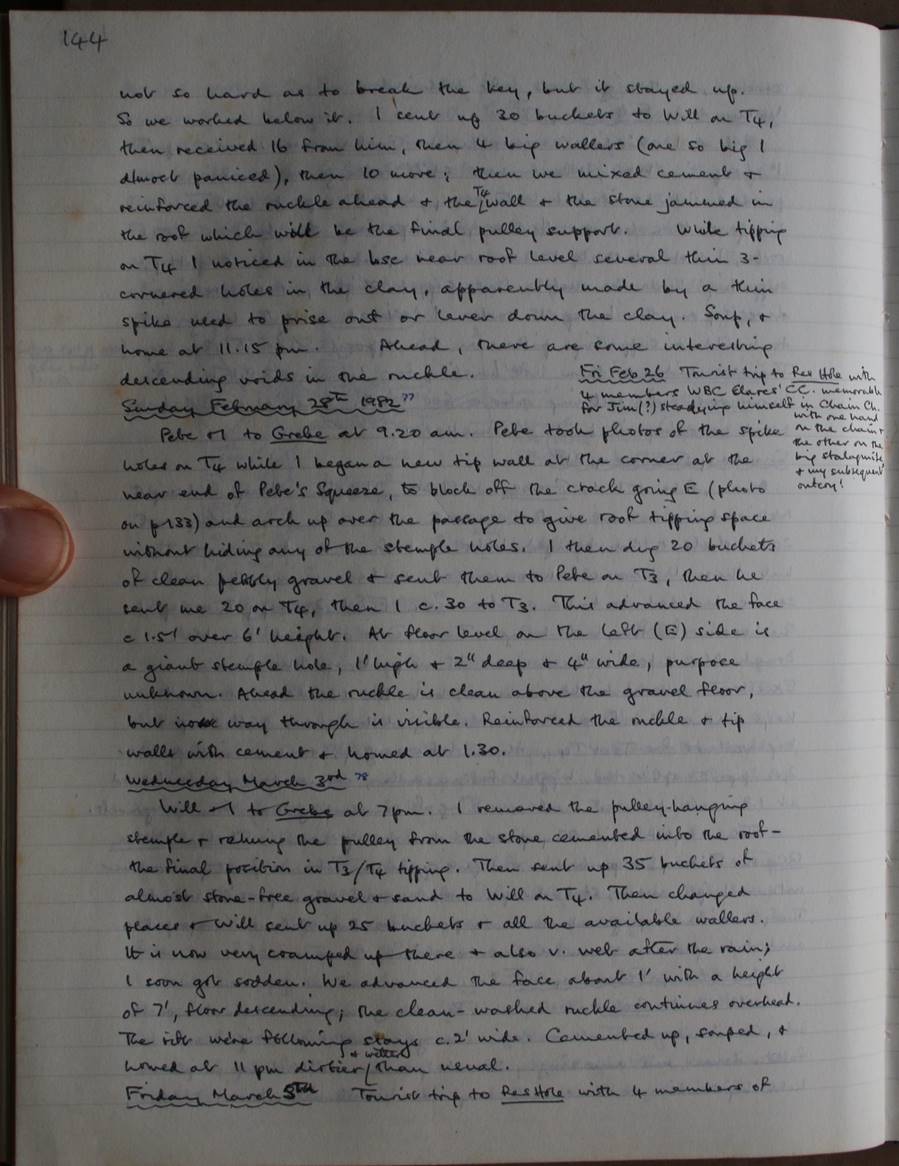 144
not so hard as to break the key, but it stayed up.
So we worked below it. I sent up 30 buckets to Will on T4,
then received 16 from him, then 4 big wallers (one so big I
almost paniced), then 10 more; then we mixed cement &
reinforced the ruckle ahead & the T4 wall & the stone jammed in
the roof which will be the final pulley support. While tipping
on T4 I noticed in the bsc near roof level several thin 3-
cornered holes in the clay, apparently made by a thin
spike used to prise out or lever down the clay. Soup, &
home at 11.15 pm. Ahead, there are some interesting
descending voids in the ruckle.
Fri Feb 26 Tourist trip to Res Hole with
4 members WBC Elares' CC. memorable
for Jim(?) steadying himself in Chain Ch.
with one hand
on the chain &
the other on the
big stalagmite
& my subsequent
outcry!
Sunday February 28th 1982 77
Pete & I to Grebe at 9.20 am. Pete took photos of the spike
holes on T4 while I began a new tip wall at the corner at the
near end of Pete's Squeeze, to block off the crack going E (photo
on p133) and arch up over the passage to give roof tipping space
without hiding any of the stemple holes. I then dug 20 buckets
of clean pebbly gravel & sent them to Pete on T3, then he
sent me 20 on T4, then I c. 30 to T3. This advanced the face
c 1.5' over 6' height. At floor level on the left (E) side is
a giant stemple hole, 1' high & 2" deep & 4" wide, purpose
unknown. Ahead the ruckle is clean above the gravel floor,
but way through is visible. Reinforced the ruckle & tip
walls with cement & homed at 1.30.
Wednesday March 3rd 78
Will & I to Grebe at 7pm. I removed the pulley-hanging
stemple & rehung the pulley from the stone cemented into the roof -
the final position in T3/T4 tipping. Then sent up 35 buckets of
almost stone-free gravel & sand to Will on T4. Then changed
places & Will sent up 25 buckets & all the available wallers.
It is now very cramped up there & also v. wet after the rain;
I soon got sodden. We advanced the face about 1' with a height
of 7', floor descending; the clean-washed ruckle continues overhead.
The rift we're following stays c.2' wide. Cemented up, souped, &
homed at 11 pm dirtier & wetter than usual.
Friday March 5th Tourist trip to Res Hole with 4 members of